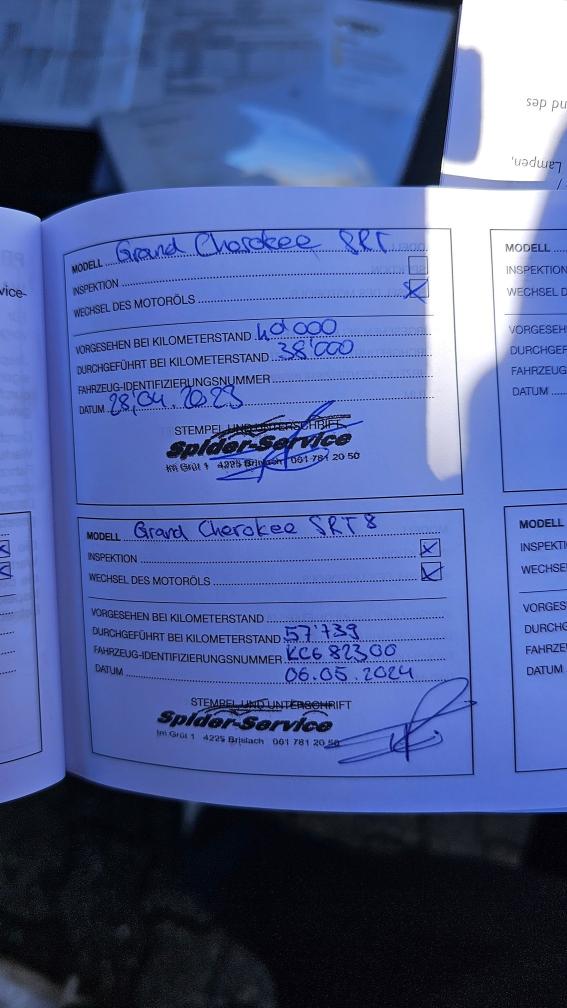 und des
Lampen,
vice-
MODELL Grand Cherokee SRT
INSPEKTION
WECHSEL DES MOTORÖLS
VORGESEHEN BEI KILOMETERSTAND 40'000
DURCHGEFÜHRT BEI KILOMETERSTAND 38'000
FAHRZEUG-IDENTIFIZIERUNGSNUMMER
DATUM 28.04.2023
STEMPEL UND UNTERSCHRIFT
Spider-Service
Im Grüt 1 4225 Brislach 061 781 20 50
MODELL Grand Cherokee SRT8
INSPEKTION
WECHSEL DES MOTORÖLS
VORGESEHEN BEI KILOMETERSTAND
DURCHGEFÜHRT BEI KILOMETERSTAND 57'739
FAHRZEUG-IDENTIFIZIERUNGSNUMMER KC682300
DATUM 06.05.2024
STEMPEL UND UNTERSCHRIFT
Spider-Service
Im Grüt 1 4225 Brislach 061 781 20 50
MODELL
INSPEKTION
WECHSEL D
VORGESEH
DURCHGEF
FAHRZEUG
DATUM
MODELL
INSPEKTI
WECHSE
VORGES
DURCHG
FAHRZE
DATUM